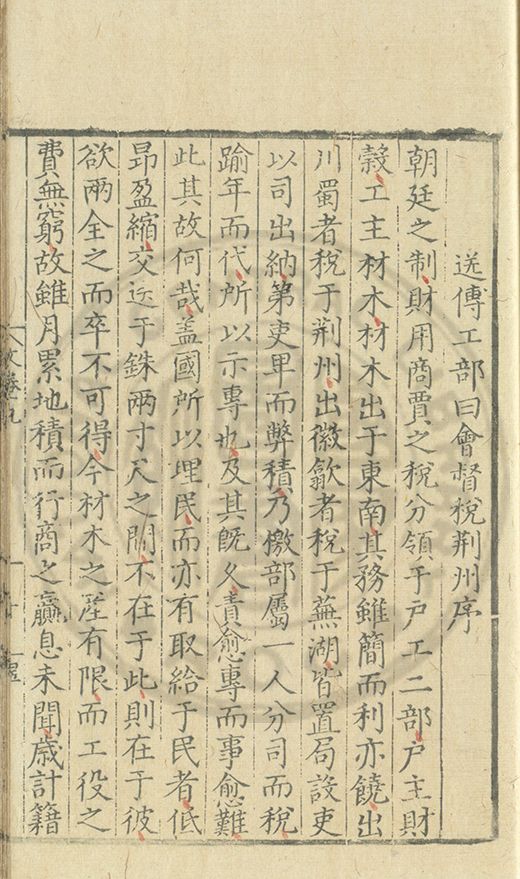 送傅工部曰會督稅荆州序
朝廷之制財用商賈之稅分領于戸工二部戸主財
穀工主材木材木出于東南其務雖簡而利亦饒出
川蜀者稅于荆州出徽歙者稅于蕪湖皆置局設吏
以司出納第吏卑而弊積乃檄部屬一人分司而稅
踰年而代所以示專也及其旣久責愈專而事愈難
此其故何哉盖國所以理民而亦有取給于民者低
昻盈縮交近于銖兩寸尺之間不在于此則在于彼
欲兩全之而卒不可得今材木之產有限而工役之
費無窮故雖月累地積而行商之贏息未聞歲計籍
文卷九